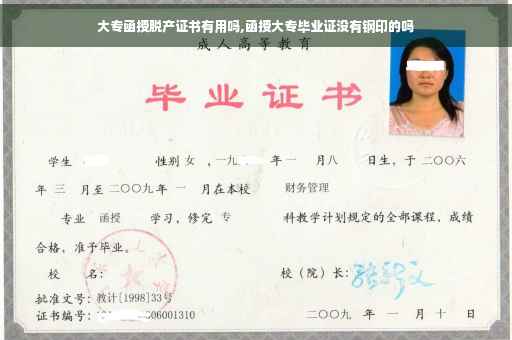 大专函授脱产证书有用吗,函授大专毕业证没有钢印的吗
成人高等教育
毕业证书
学生 性别 女 ,一九 年一 月八 日生，于二〇〇六
年 三 月至二〇〇九年 一 月在本校 财务管理
专业 函授 学习，修完 专 科教学计划规定的全部课程，成绩
合格，准予毕业。
校 名： 校（院）长：
批准文号：教计[1998]33号
证书编号： 06001310 二〇〇九 年 一 月 十 日